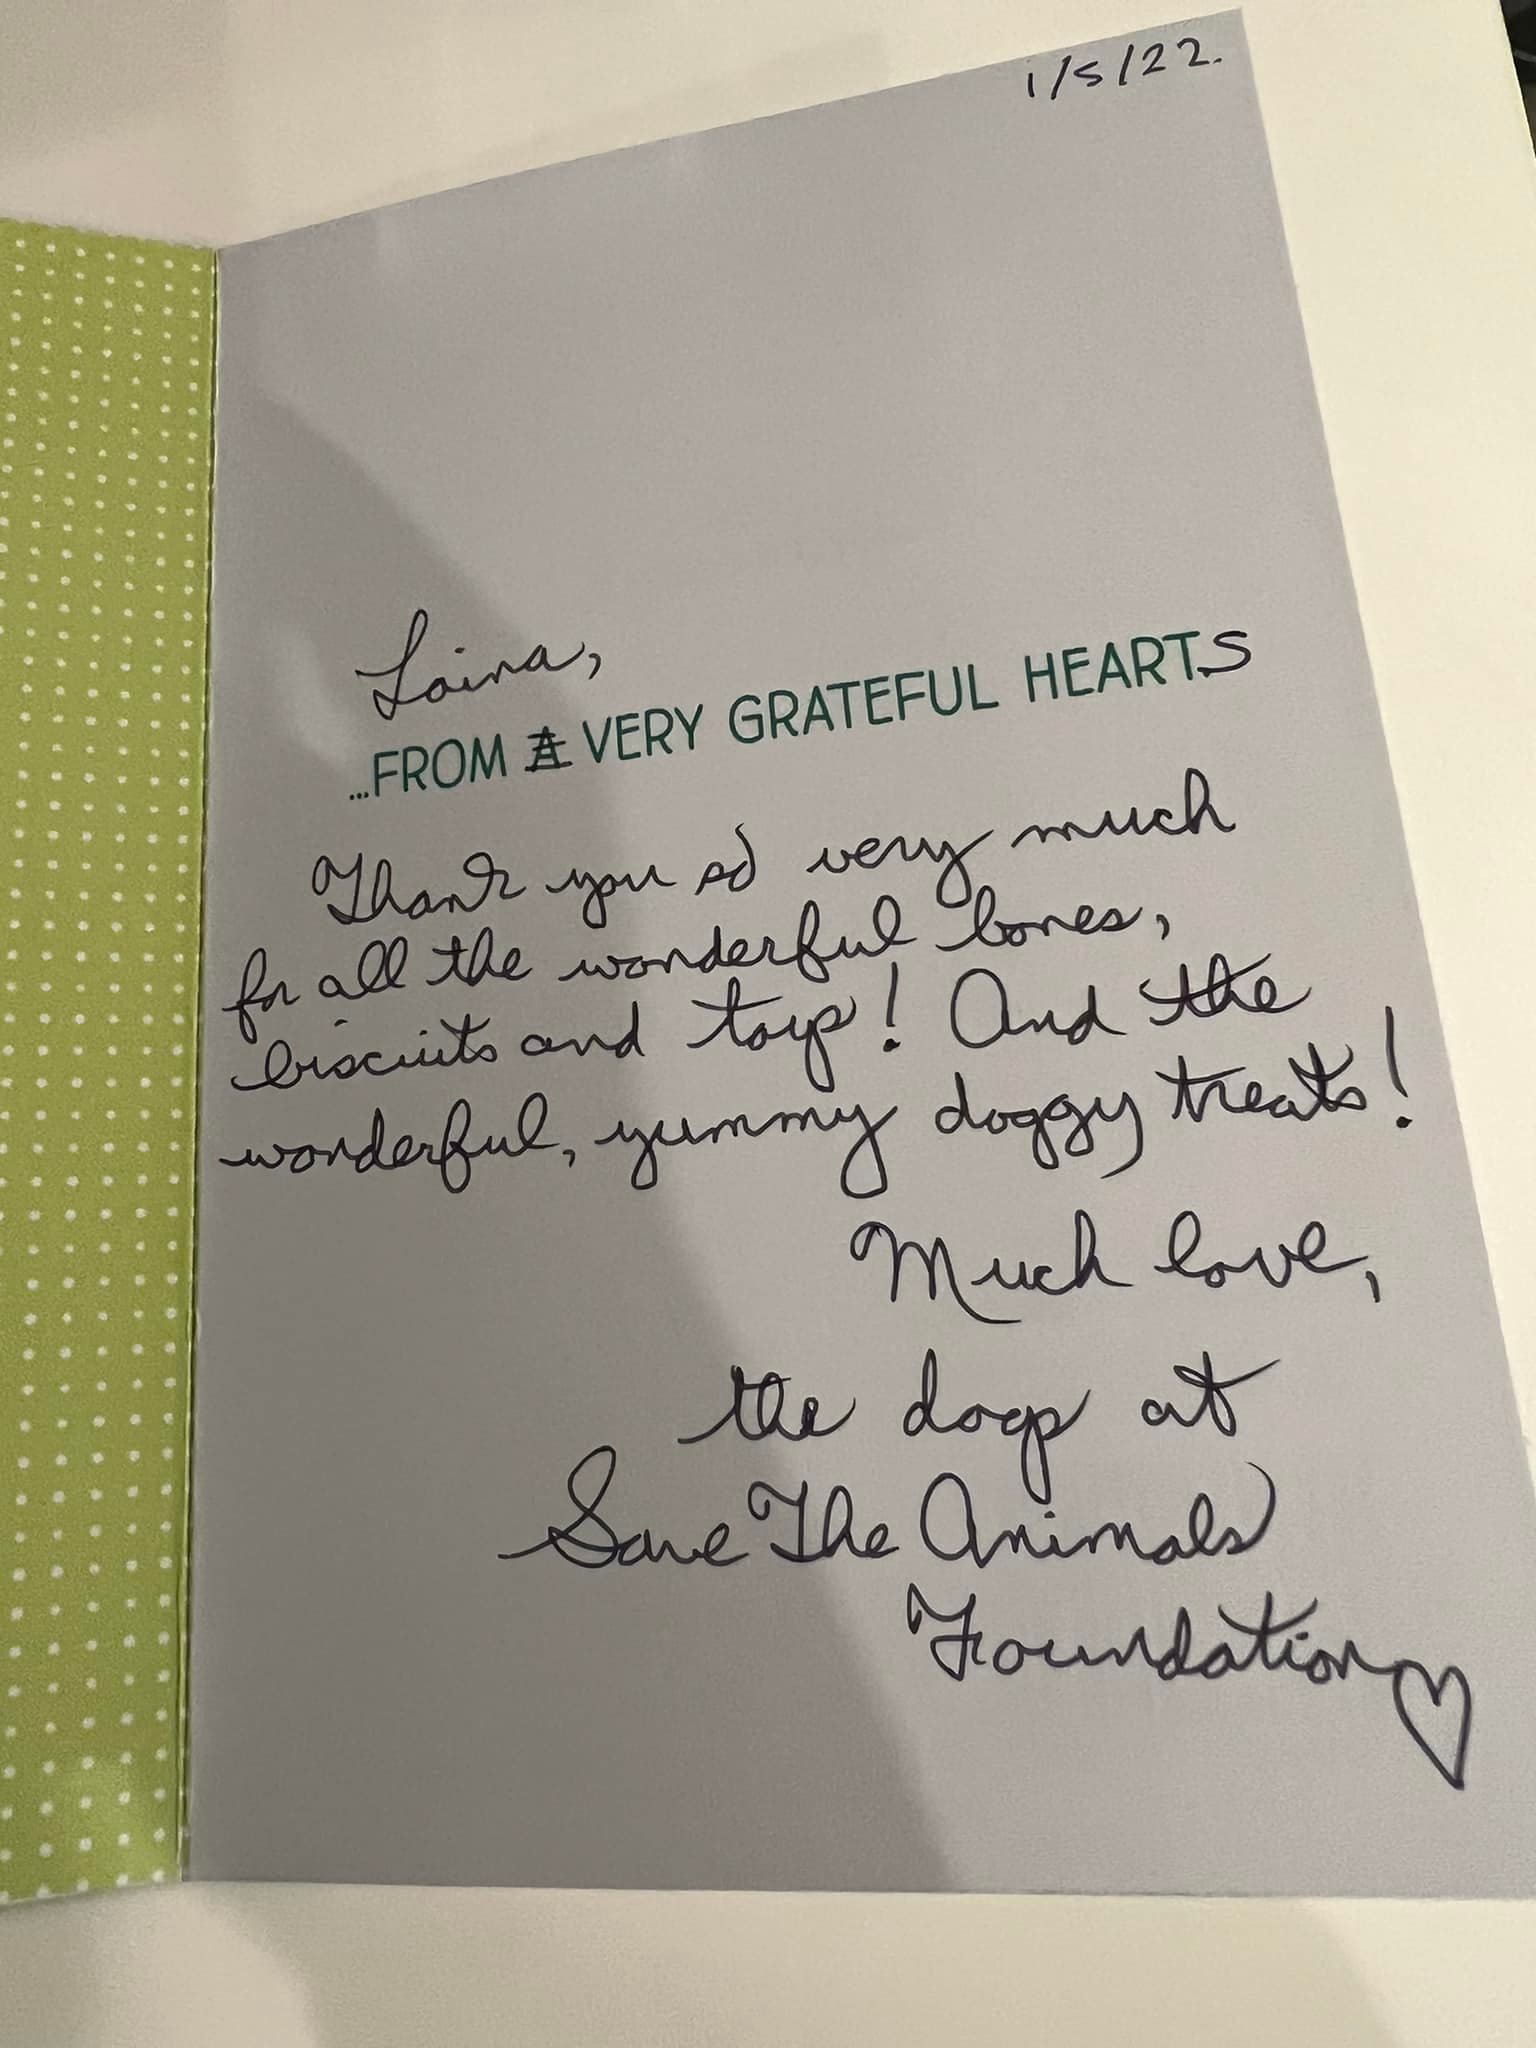 1/5/22.
Laina,
...FROM A VERY GRATEFUL HEARTS
Thank you so very much
for all the wonderful bones,
biscuits and toys! And the
wonderful, yummy doggy treats!
Much love,
the dogs at
Save The Animals
Foundation